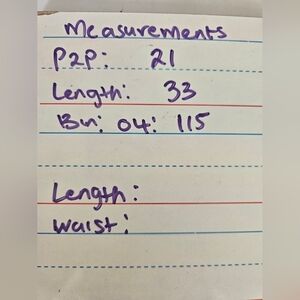 Measurements
P2P: 21
Length: 33
Bn: 04: 115
Length:
Waist: